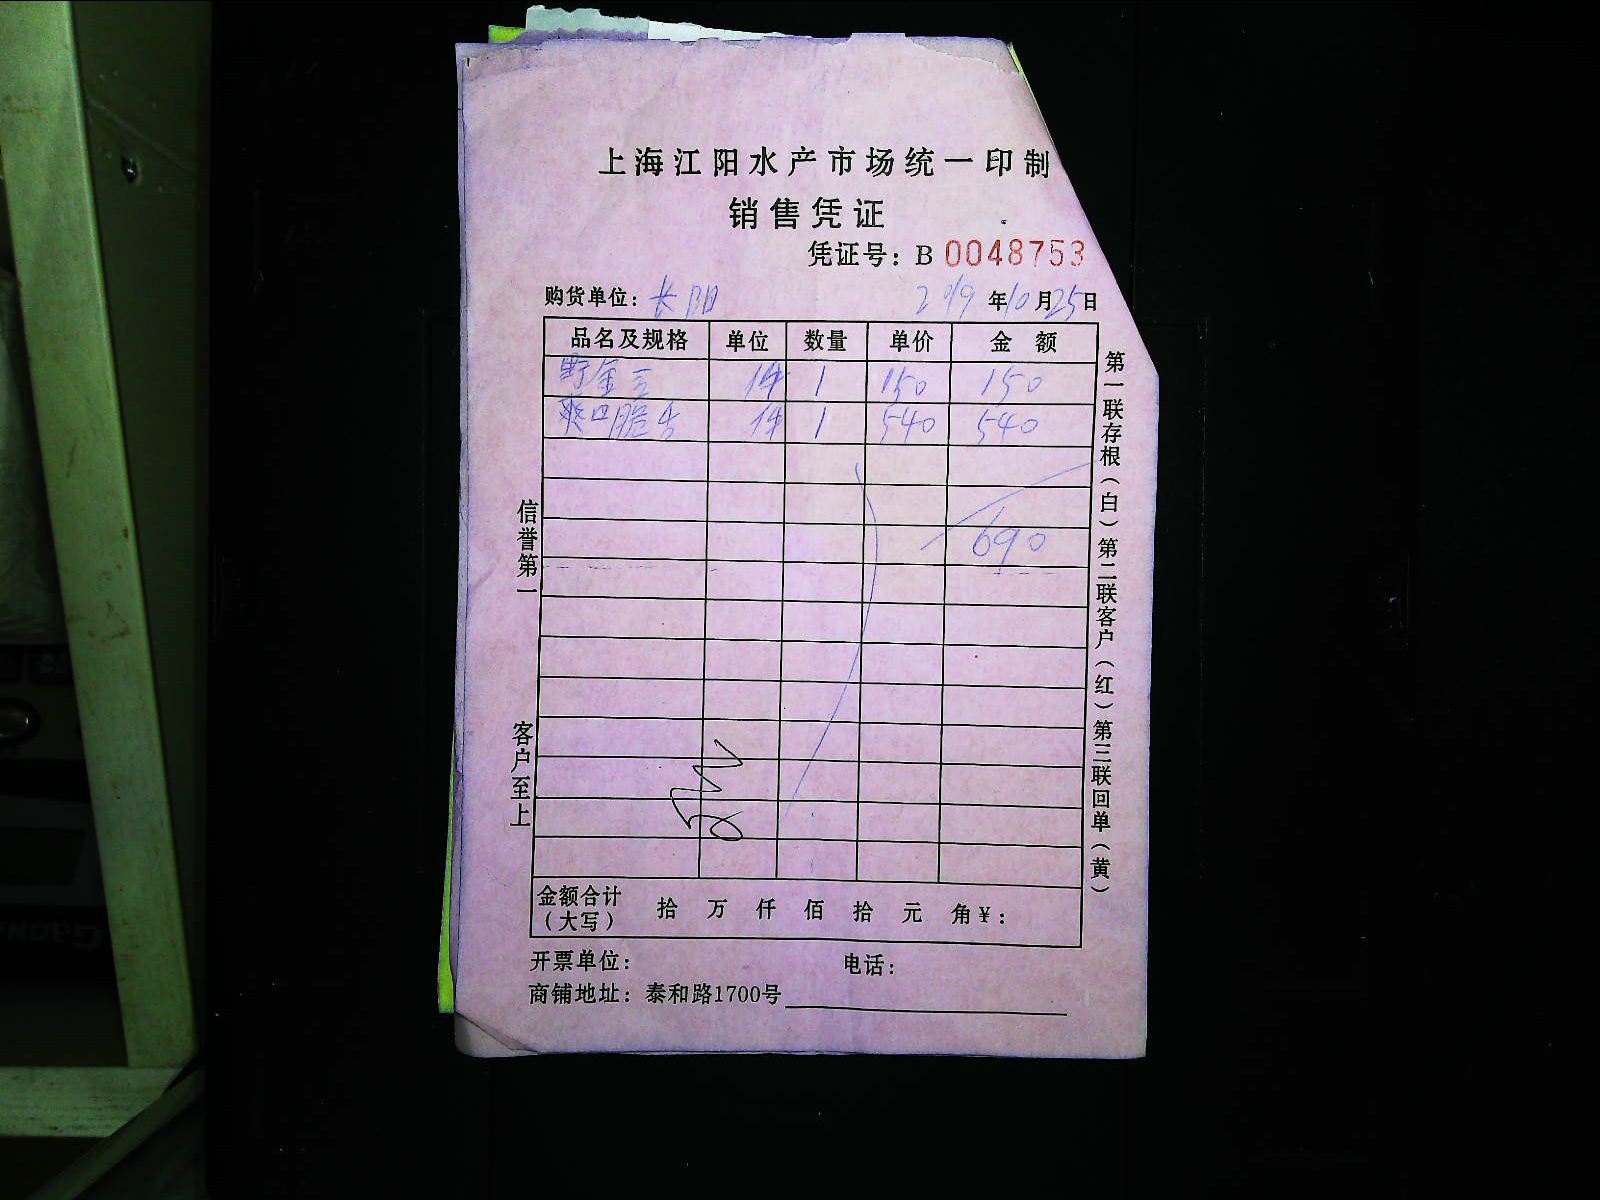 上海江阳水产市场统一印制
销售凭证
凭证号：B 0048753
购货单位：长阳 2019年10月25日
品名及规格 单位 数量 单价 金额
件 1 150 150
爽口脆 件 1 540 540
690
金额合计（大写） 拾 万 仟 佰 拾 元 角 ¥：
开票单位： 电话：
商铺地址：泰和路1700号
信誉第一
客户至上
第一联存根（白）第二联客户（红）第三联回单（黄）